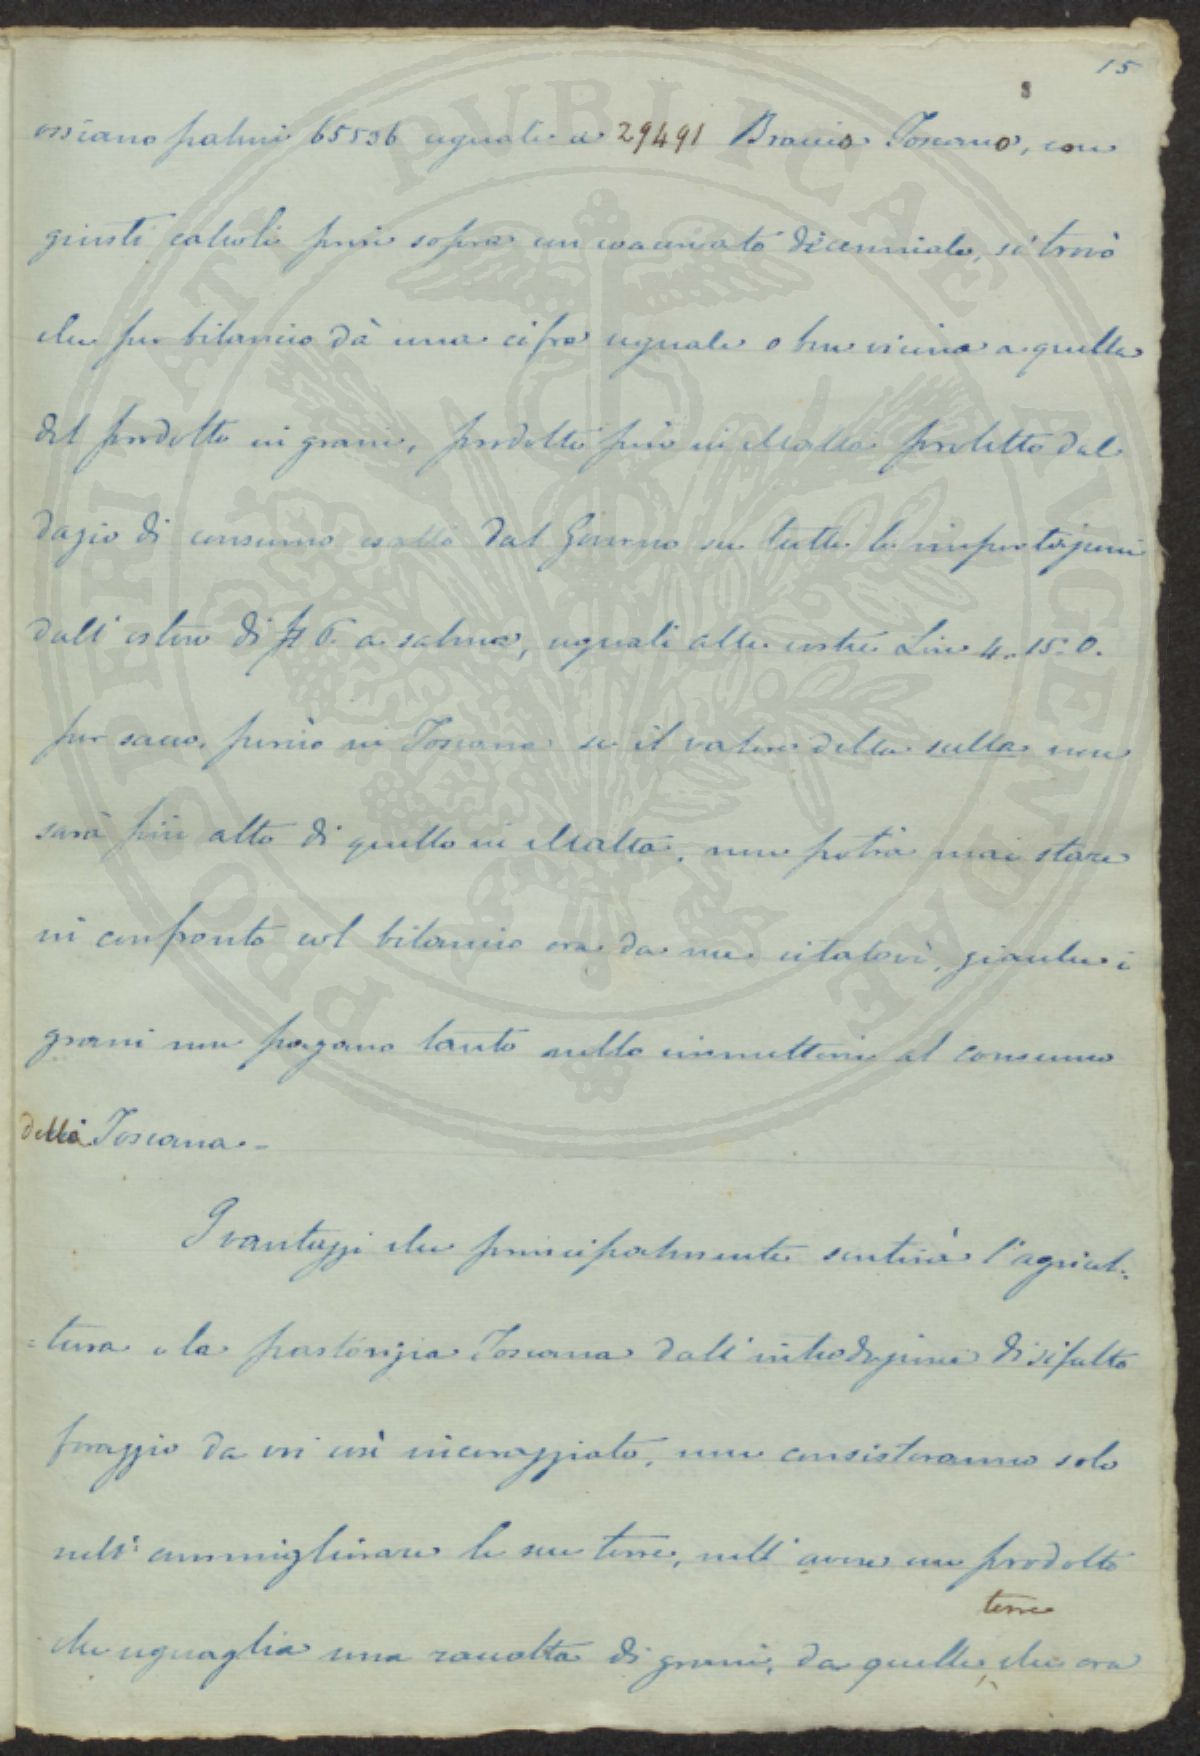 15
ossiano palmi 65536 uguali a 29491 Braccio Toscano, con
giusti calcoli presi sopra un coacervato dicenniale, si trovò
che per bilancio dà una cifra uguale o ben vicina a quella
del prodotto in grani, prodotto però in Malta protetto dal
dazio di consumo esatto dal Governo su tutte le importazioni
dall'estero di 6 a salma, uguali alle vostre Lire 4.15.0.
per sacco, perciò in Toscana se il valore della sulla non
sarà più alto di quello in Malta, non potrà mai stare
in confronto col bilancio ora da me citatovi, giacche i
grani non pagano tanto nello immettersi al consumo
della Toscana.
I vantaggi che principalmente sentirà l'agricol=
=tura e la pastorizia Toscana dall'introduzione di sifatto
foraggio da voi così incoraggiato, non consisteranno solo
nell'ammigliorare le sue terre, nell'avere un prodotto
terre
che uguaglia una raccolta di grani, da quelle, che ora
PROSPERITATI PUBLICAE AUGENDAE